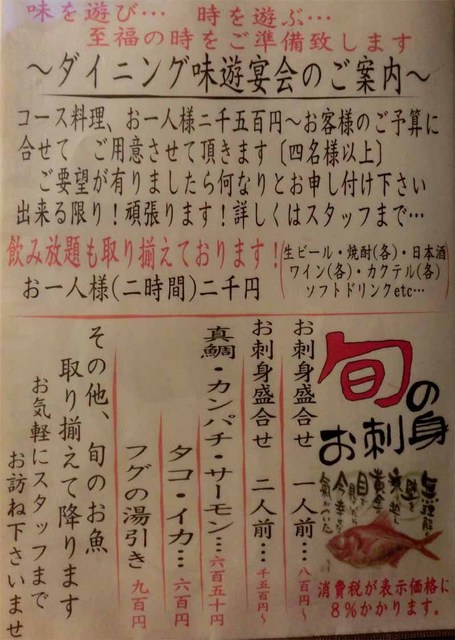 味を遊び… 時を遊ぶ…
至福の時をご準備致します
～ダイニング味遊宴会のご案内～
コース料理、お一人様二千五百円～お客様のご予算に
合せて ご用意させて頂きます〔四名様以上〕
ご要望が有りましたら何なりとお申し付け下さい
出来る限り！頑張ります！詳しくはスタッフまで…
飲み放題も取り揃えております！
お一人様(二時間)二千円
生ビール・焼酎(各)・日本酒
ワイン(各)・カクテル(各)
ソフトドリンクetc…
旬の
お刺身
消費税が表示価格に
8%かかります。
お刺身盛合せ 一人前…八百円～
お刺身盛合せ 二人前…千五百円～
真鯛・カンパチ・サーモン…六百五十円
タコ・イカ…六百円
フグの湯引き 九百円
その他、旬のお魚
取り揃えて降ります
お気軽にスタッフまで
お訪ね下さいませ